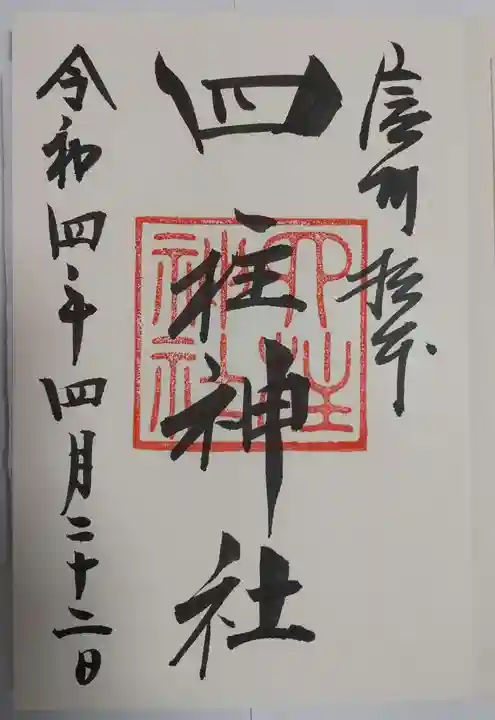 信州松本
四柱神社
四柱神社
令和四年四月二十二日